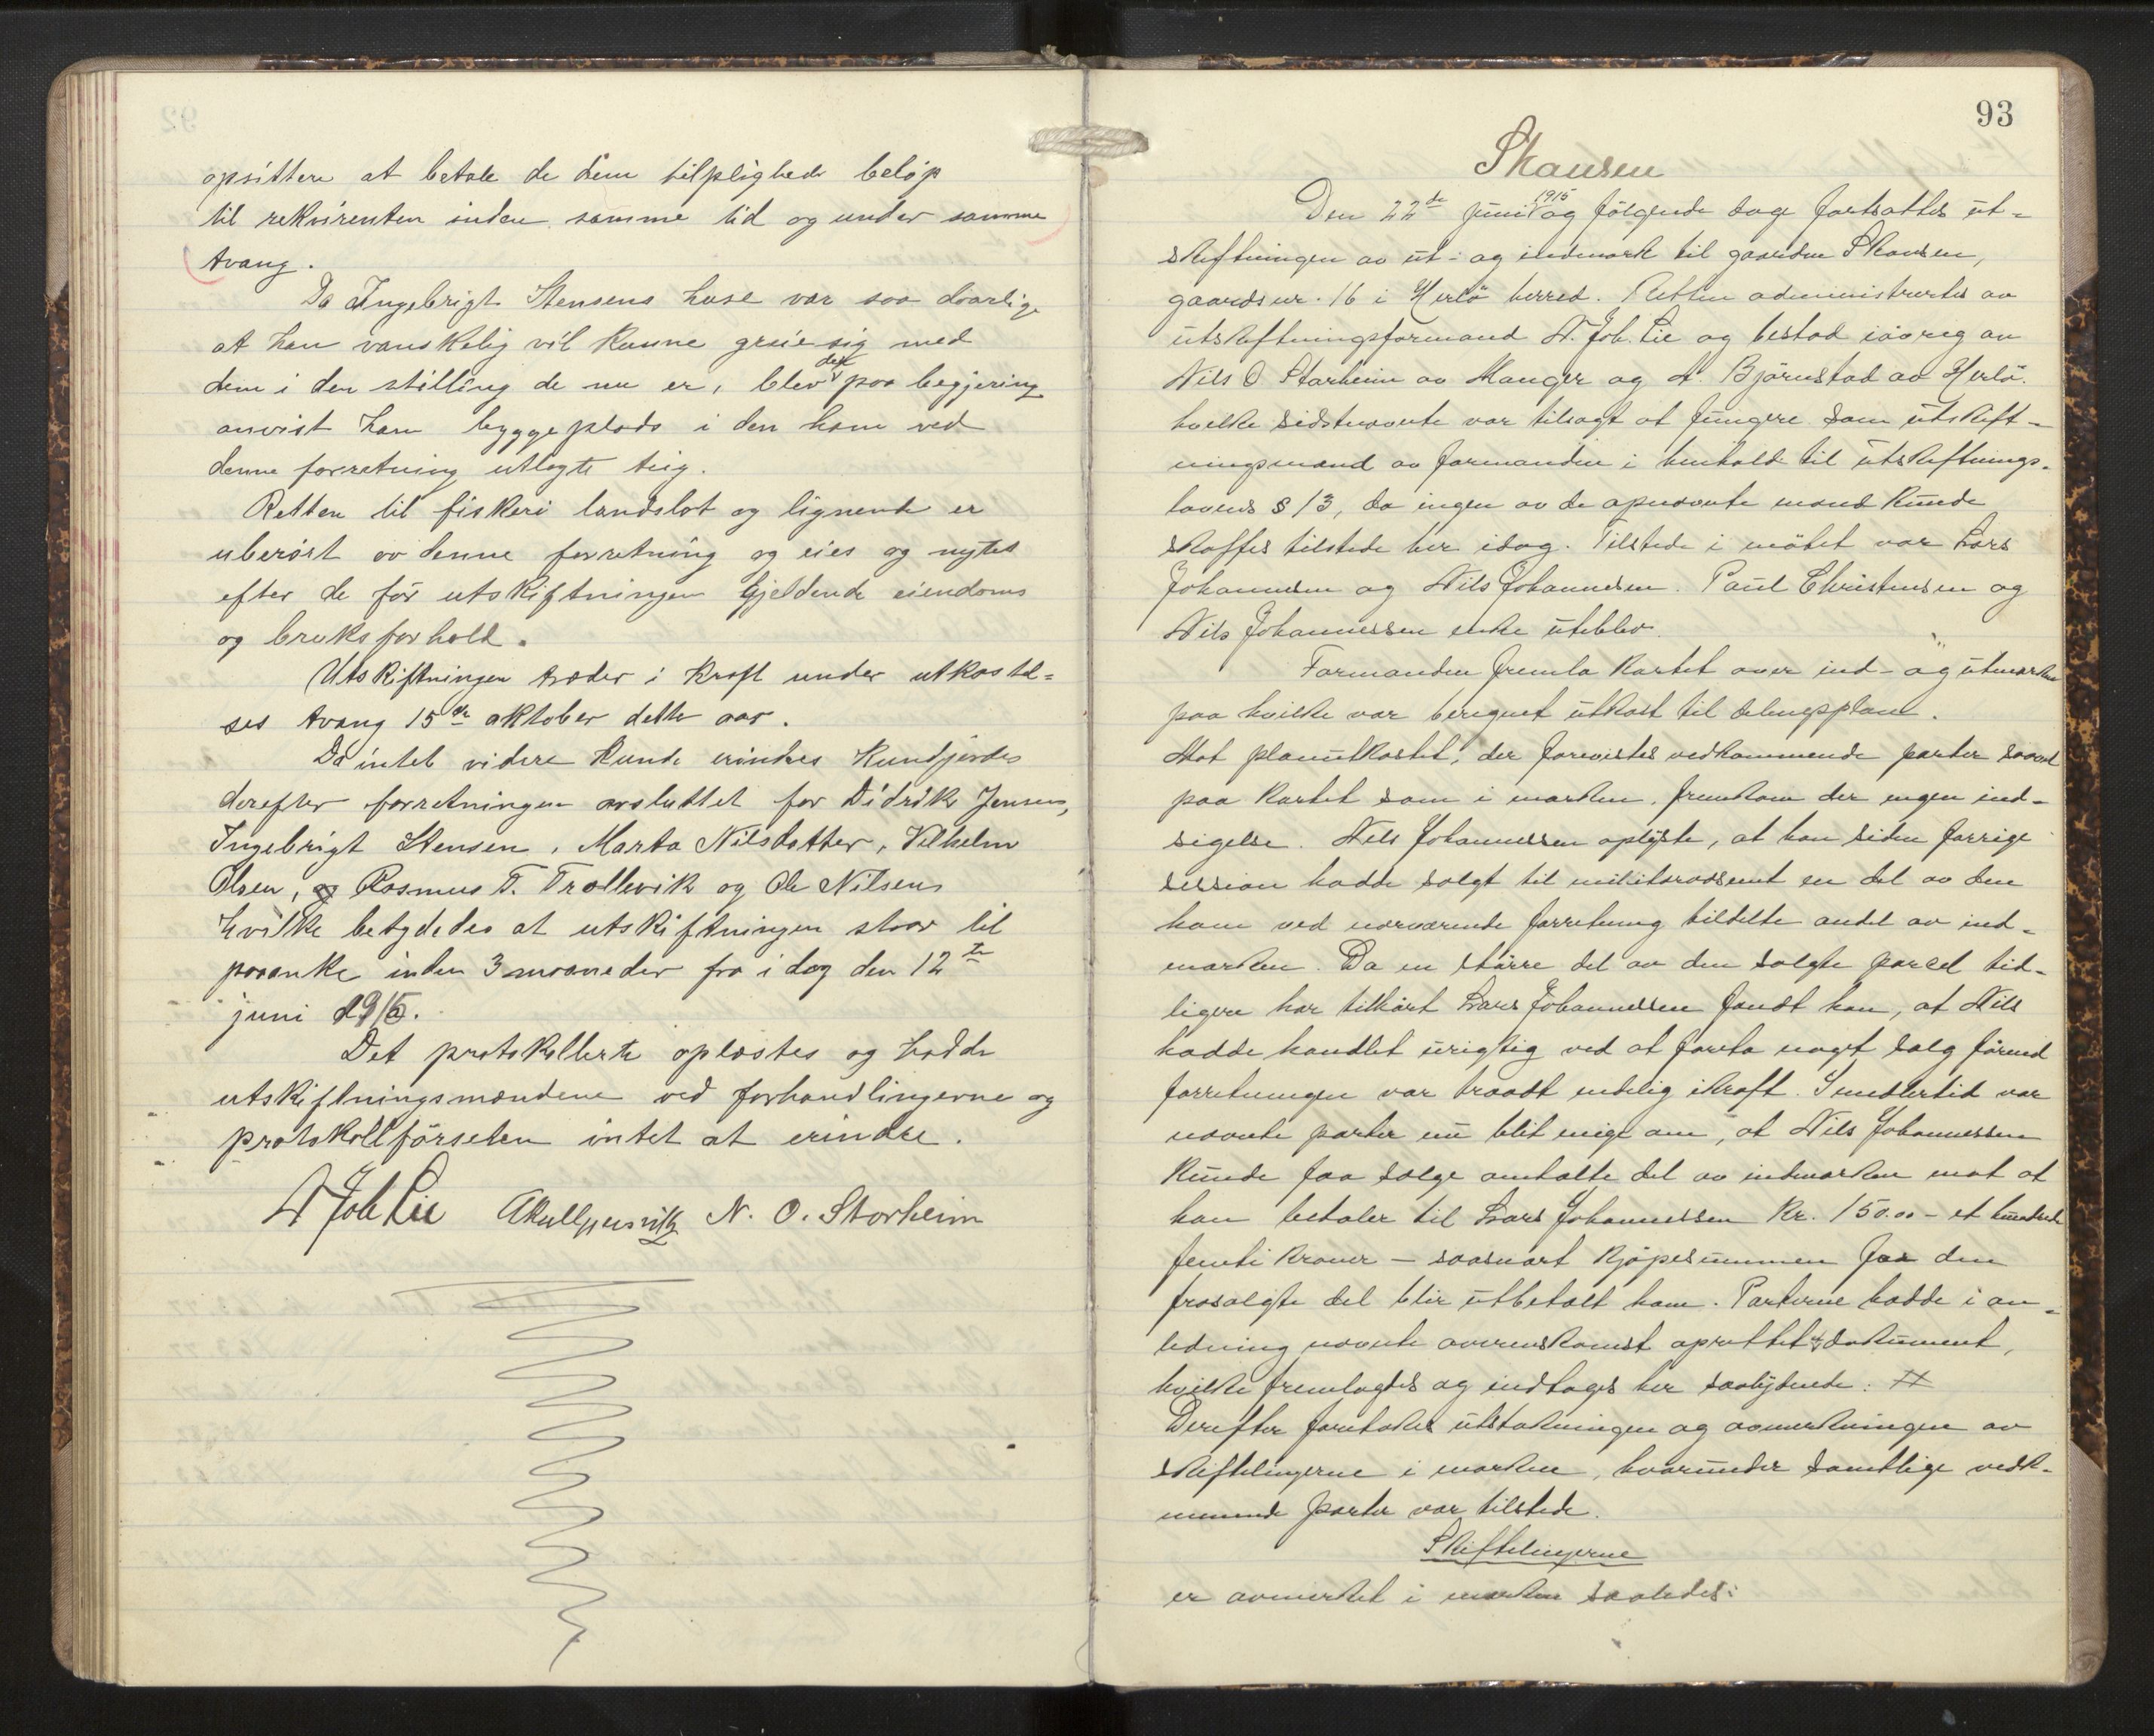 opsittere at betale de dem tilpligtede beløp
til rekvirenten inden samme tid og under samme
tvang.
Da Ingebrigt Stensens huse var saa daarlige
at han vanskelig vil kunne greie sig med
dem i den stilling de nu er, blev der paa begjæring
anvist ham byggeplads i den ham ved
denne forretning utlagte teig.
Retten til fiskeri landslot og lignende er
uberørt av denne forretning og eies og nytes
efter de før utskiftningen gjeldende eiendoms
og bruksforhold.
Utskiftningen træder i kraft under utkastel=
ses tvang 15de oktober dette aar.
Da intet videre kunde erindres kundgjordes
derefter forretningen avsluttet for Didrik Jensen,
Ingebrigt Stensen, Marta Nilsdatter, Vilhelm
Olsen, og Rasmus T. Trollevik og Ole Nilsen
hvilke betydedes at utskiftningen staar til
paaanke inden 3 maaneder fra i dag den 12te
juni 1915.
Det protokollerte oplæstes og hadde
utskiftningsmændene ved forhandlingerne og
protokollførselen intet at erindre.
A Joh Lie N. O. Storheim
93
Skansen
Den 22de juni 1915 og følgende dage fortsattes ut-
skiftningen av ut- og indmark til gaarden Skansen,
gaardsnr. 16 i Herlø herred. Retten administrertes av
utskiftningsformand A. Joh. Lie og bestod iøvrig av
Nils O Storheim av Manger og A. Bjørnstad av Herlø.
hvilke sidstnævnte var tilsagt at fungere som utskift-
ningsmænd av formanden i henhold til utskiftnings-
lovens § 13, da ingen av de opnævnte mænd kunde
skaffes tilstede her idag. Tilstede i møtet var Lars
Johannesen og Nils Johannesen. Paul Christensen og
Nils Johannessen enke uteblev.
Formanden fremla kartet over ind- og utmarken
paa hvilke var beregnet utkast til delingsplan.
Mot planutkastet, der forevistes vedkommende parter saavel
paa kartet som i marken, fremkom der ingen ind-
sigelse. Nils Johannessen oplyste, at han siden forrige
session hadde solgt til militærvæsenet en del av den
ham ved nærværende forretning tildelte andel av ind-
marken. Da en større del av den solgte parcel tid-
ligere har tilhørt Lars Johannessen fandt han, at Nils
hadde handlet urigtig ved at foreta noget salg førend
forretningen var traadt endelig ikraft. Imidlertid var
nævnte parter nu blit enige om, at Nils Johannessen
kunde faa sælge omtalte del av indmarken mot at
han betaler til Lars Johannessen Kr. 150.00 - et hundrede
femti kroner - saasnart kjøpesummen for den
frasolgte del blir utbetalt ham. Parterne hadde i an-
ledning nævnte overenskomst oprettet et dokument,
hvilke fremlagdes og indtages her saalydende: #
Derefter foretokes utstakningen og avmerkningen av
skiftelinjerne i marken, hvorunder samtlige vedk-
mmende parter var tilstede.
Skiftelinjerne
er avmerket i marken saaledes: